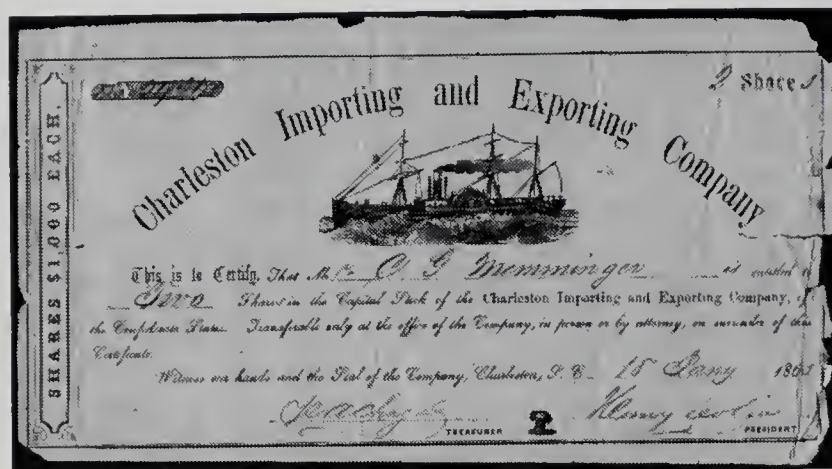 2 Shares
Charleston Importing and Exporting Company
SHARES $1,000 EACH.
This is to Certify, That Mr. C G Memminger is entitled to
Two Shares in the Capital Stock of the Charleston Importing and Exporting Company, of
the Confederate States. Transferable only at the office of the Company, in person or by attorney, on surrender of this
Certificate.
Witness our hands and the Seal of the Company, Charleston, S. C. 15 Jany 186
TREASURER 2 Henry PRESIDENT